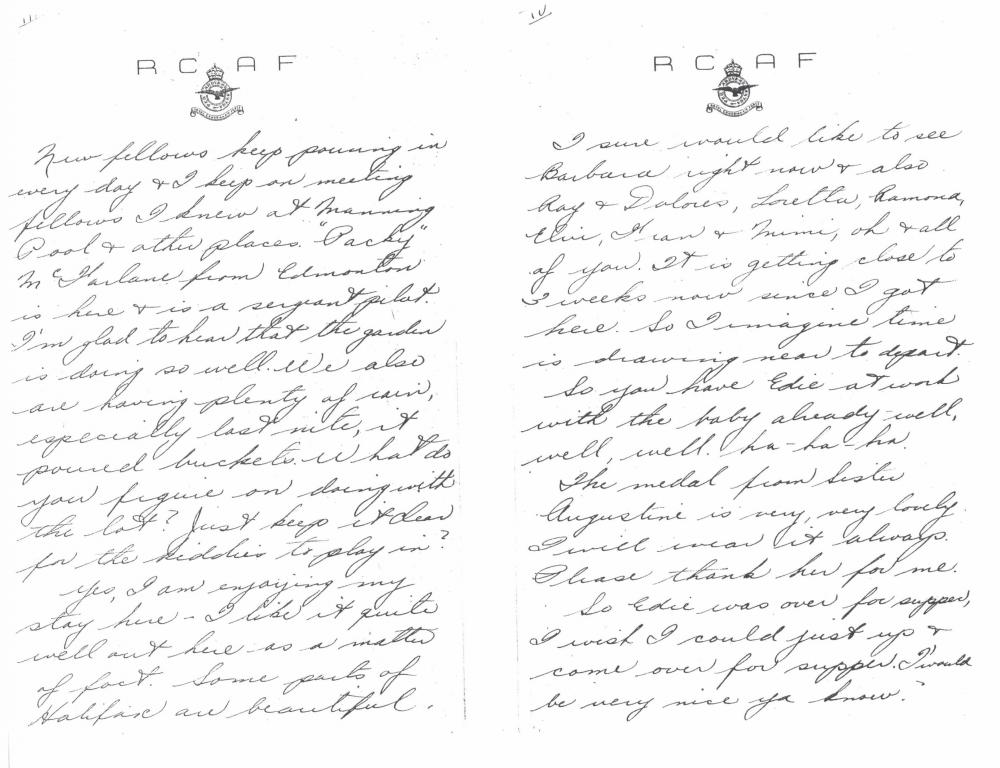 III
R C A F
New fellows keep pouring in
every day & I keep on meeting
fellows I knew at Manning
Pool & other places. "Packy"
McFarlane from Edmonton
is here & is a sergeant pilot.
I'm glad to hear that the garden
is doing so well. We also
are having plenty of rain,
especially last nite, it
poured buckets. What do
you figure on doing with
the lot? Just keep it clear
for the kiddies to play in?
Yes, I am enjoying my
stay here - I like it quite
well out here as a matter
of fact. Some parts of
Halifax are beautiful.
IV
R C A F
I sure would like to see
Barbara right now & also
Ray & Dolores, Loretta, Ramona,
Elvie, Fran & Mimi, oh & all
of you. It is getting close to
3 weeks now since I got
here. So I imagine time
is drawing near to depart.
So you have Edie at work
with the baby already - well,
well, well. ha-ha-ha.
The medal from Sister
Augustine is very, very lovely.
I will wear it always.
Please thank her for me.
So Edie was over for supper,
I wish I could just up &
come over for supper. T'would
be very nice ya know?